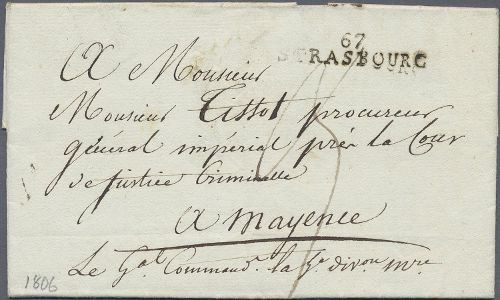 67
STRASBOURG
A Monsieur
Monsieur Tissot procureur
général impérial près la Cour
de justice Criminelle
A Mayence
Le Gal Commandt. la 5e divon mre.
1806